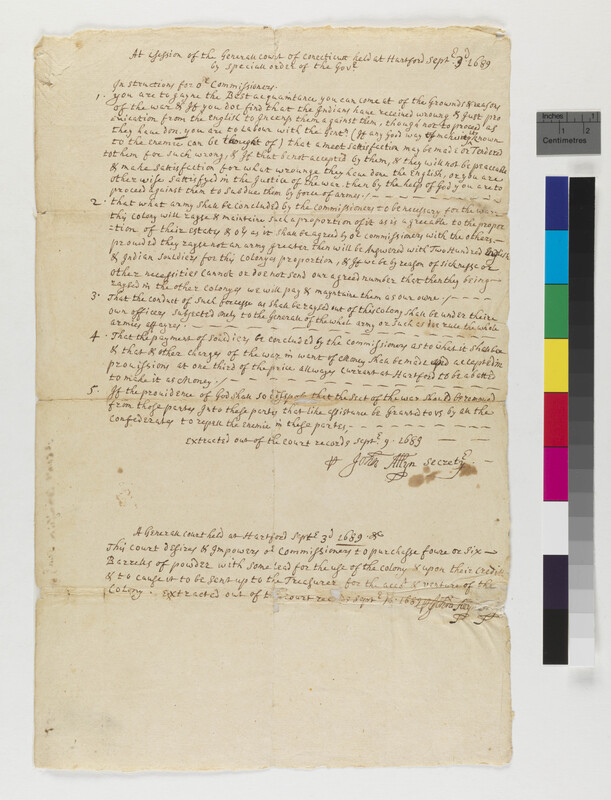 At a Session of the Generall court of Conecticutt held at Hartford Septr 3d 1689
by Special order of the Govr
Instructions for or Commissioners.
1. you are to gayne the Best acquaintance you can come at of the Grounds & reasons
of the war & If you doe find that the Indians have received wroung & Just pro
vocation from the English to Incenss them against them, though not to proceed as
they have don, you are to Labour with the Gent (If any Good way of makeing known
to the enemie can be thought of) that a meet Sattisfaction may be made or Tendered
to them for such wrong, & If that be not accepted by them, & they will not be peaceable
& make Satisfaction for what wrounge they have done the English, or you are
other wise Sattissfyed in the Justice of the war, then by the help of God you are to
proceed against them to Subdue them by force of armes.
2. that what army shall be concluded by the Commissioners to be necessary for the war
this Colony will rayse & mainteine such a proportion of it as is agreable to the propor
=tion of their Estates & as it shall be agreed by or commissioners with the others,
provided they rayse not an army greater then will be Answered with Two Hundred English
& Indian Souldiers for this Colonyes proportion, & If we by reason of Sicknesse or
other necessities Cannot or doe not send our agreed number that then they being
raysed in the other Colonyes we will pay & mayntaine them as our owne.
3. That the conduct of such forcesse as shall be raysed out of this Colony shall be under their
own officers subjected only to the Generall of the whole army or such as doe rule the whole
armies affayres.
4. That the payment of Souldiers be concluded by the commissioners as to what it shall be
& that & other charges of the war in want of Money shall be made and accepted in
provissions at one third of the price allwayes currant at Hartford to be abated
to make it as Money.
5. If the providence of God shall so dispose that the Seet of the war should be removed
from those partes Into these partes that like assistance be Granted to us by all the
Confederates to repell the enemie in these partes,
extracted out of the court records Septr 9. 1689
John Allyn Secretr
A Generall court held at Hartford Septr 3d 1689
This court desires & Impowers or Commissioners to purchasse foure or Six
Barrells of powder with some lead for the use of the Colony & upon their Credit
& to cause it to be sent up to the Treasurer for the acct & venture of the
Colony. extracted out of the court records Septr 1689 John Allyn